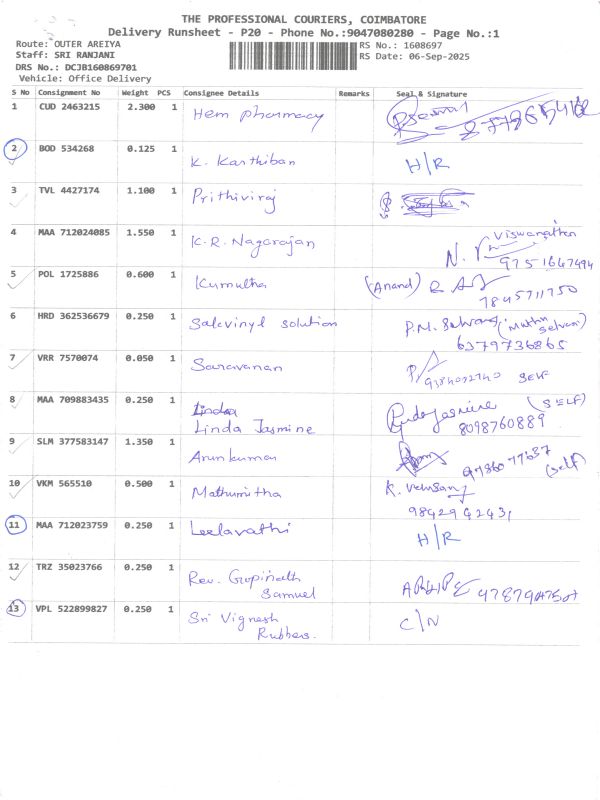 THE PROFESSIONAL COURIERS, COIMBATORE
Delivery Runsheet - P20 - Phone No.:9047080280 - Page No.:1
Route: OUTER AREIYA RS No.: 1608697
Staff: SRI RANJANI RS Date: 06-Sep-2025
DRS No.: DCJB160869701
Vehicle: Office Delivery
S No Consignment No Weight PCS Consignee Details Remarks Seal & Signature
1 CUD 2463215 2.300 1 Hem pharmacy
2 BOD 534268 0.125 1 K. Karthiban H/R
3 TVL 4427174 1.100 1 Prithiviraj
4 MAA 712024085 1.550 1 K.R. Nagarajan N. Viswanathan
9751647494
5 POL 1725886 0.600 1 Kumutha (Anand)
7845711750
6 HRD 362536679 0.250 1 Salevinyl solution P.M.
6379736865
7 VRR 7570074 0.050 1 Saravanan
9384092740 SELF
8 MAA 709883435 0.250 1 Linda
Linda Jasmine (SELF)
8098760889
9 SLM 377583147 1.350 1 Arunkumar
9786077637 (self)
10 VKM 565510 0.500 1 Mathumitha K.
11 MAA 712023759 0.250 1 Leelavathi H/R
12 TRZ 35023766 0.250 1 Rev. Gopinath
Samuel
13 VPL 522899827 0.250 1 Sri Vignesh C/N
Rubbers.